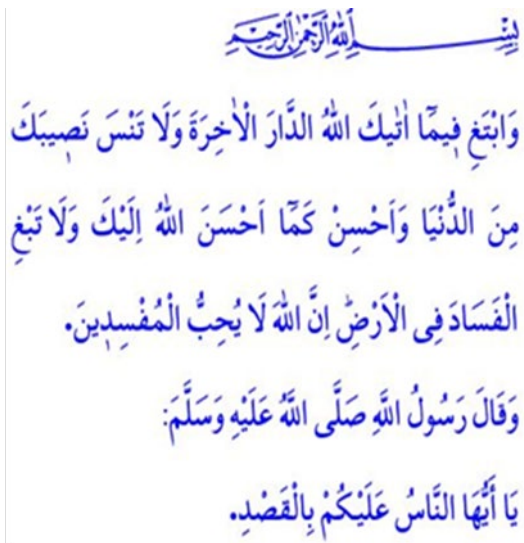 بِسْمِ اللّٰهِ الرَّحْمٰنِ الرَّحٖيمِ
وَابْتَغِ فٖيمَٓا اٰتٰيكَ اللّٰهُ الدَّارَ الْاٰخِرَةَ وَلَا تَنْسَ نَصٖيبَكَ
مِنَ الدُّنْيَا وَاَحْسِنْ كَمَٓا اَحْسَنَ اللّٰهُ اِلَيْكَ وَلَا تَبْغِ
الْفَسَادَ فِى الْاَرْضِۜ اِنَّ اللّٰهَ لَا يُحِبُّ الْمُفْسِدٖينَ.
وَقَالَ رَسُولُ اللَّهِ صَلَّى اللَّهُ عَلَيْهِ وَسَلَّمَ:
يَا أَيُّهَا النَّاسُ عَلَيْكُمْ بِالْقَصْدِ.